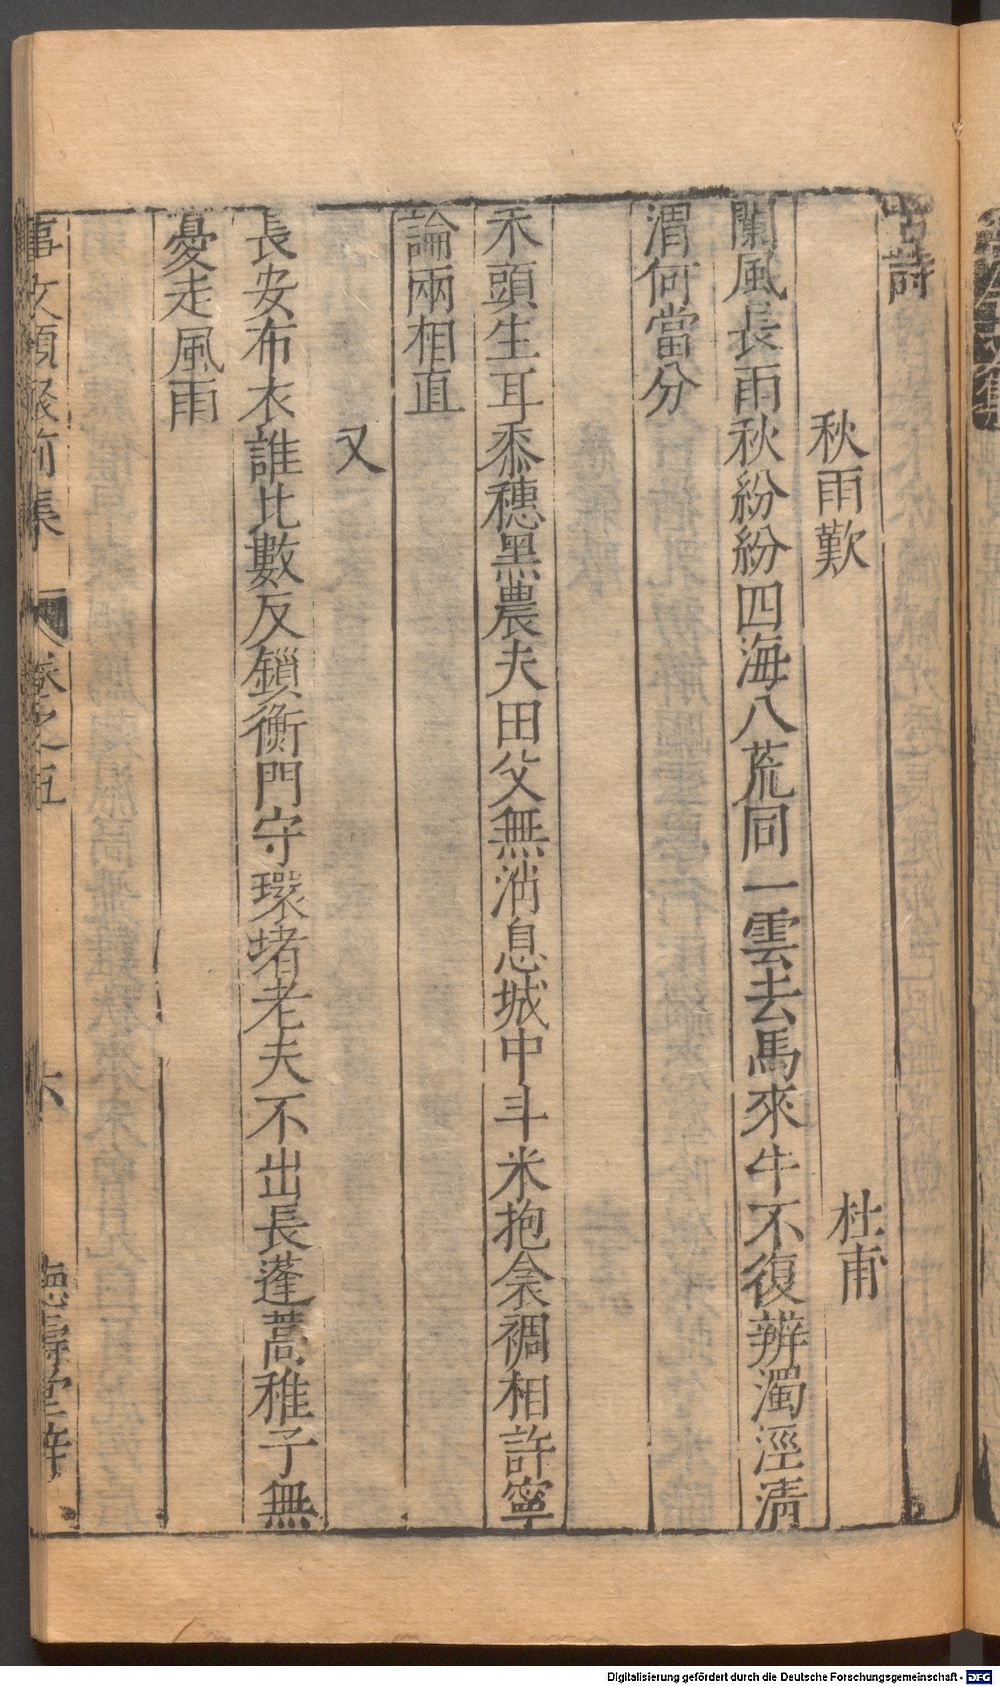 古詩
秋雨歎　杜甫
闌風長雨秋紛紛四海八荒同一雲去馬來牛不復辨濁涇清
渭何當分
禾頭生耳黍穗黑農夫田父無消息城中斗米抱衾裯相許寧
論兩相直
又
長安布衣誰比數反鎖衡門守環堵老夫不出長蓬蒿稚子無
憂走風雨
事文類聚前集　卷之五　六　德壽堂梓
Digitalisierung gefördert durch die Deutsche Forschungsgemeinschaft - DFG